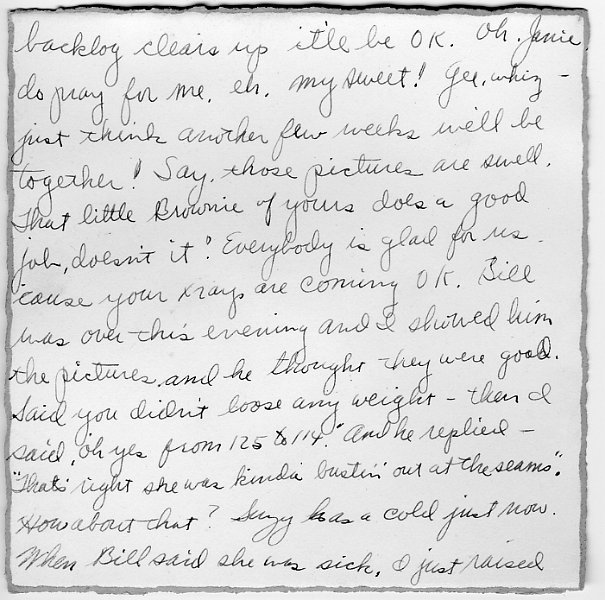 backlog clears up it'll be OK. Oh. Janie
do pray for me, eh. my sweet! Gee, whiz -
just think another few weeks we'll be
together! Say, those pictures are swell.
That little Brownie of yours does a good
job, doesn't it? Everybody is glad for us
'cause your xrays are coming OK. Bill
was over this evening and I showed him
the pictures, and he thought they were good.
Said you didn't loose any weight - then I
said, "oh yes from 125 to 114." And he replied -
"That's right she was kinda bustin' out at the seams".
How about that? Suzy has a cold just now.
When Bill said she was sick, I just raised